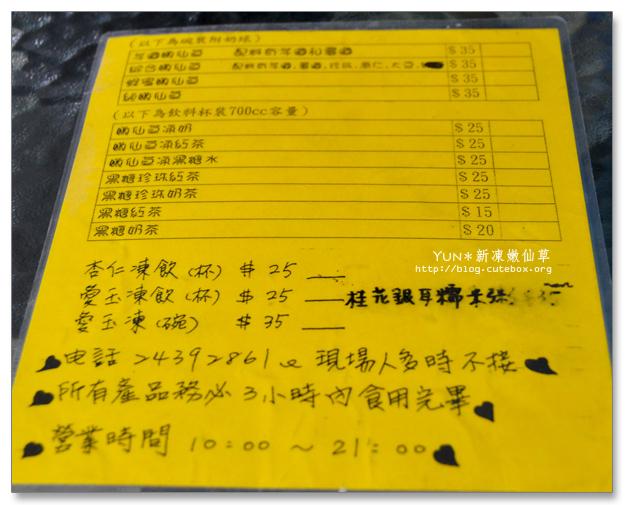 (以下為碗裝附奶球)
芋圓嫩仙草 配料有芋圓和薯圓 $35
綜合嫩仙草 配料有芋圓,薯圓,珍珠,薏仁,大豆, $35
蜂蜜嫩仙草 $35
純嫩仙草 $35
(以下為飲料杯裝700cc容量)
嫩仙草凍奶 $25
嫩仙草凍紅茶 $25
嫩仙草凍黑糖水 $25
黑糖珍珠紅茶 $25
黑糖珍珠奶茶 $25
黑糖紅茶 $15
黑糖奶茶 $20
YUN*新凍嫩仙草
http://blog.cutebox.org
杏仁凍飲(杯) $25
愛玉凍飲(杯) $25 桂花銀耳糯米
愛玉凍(碗) $35
电話 24392861 現場人多時不接
所有產品務必3小時內食用完畢
營業時間 10:00~21:00